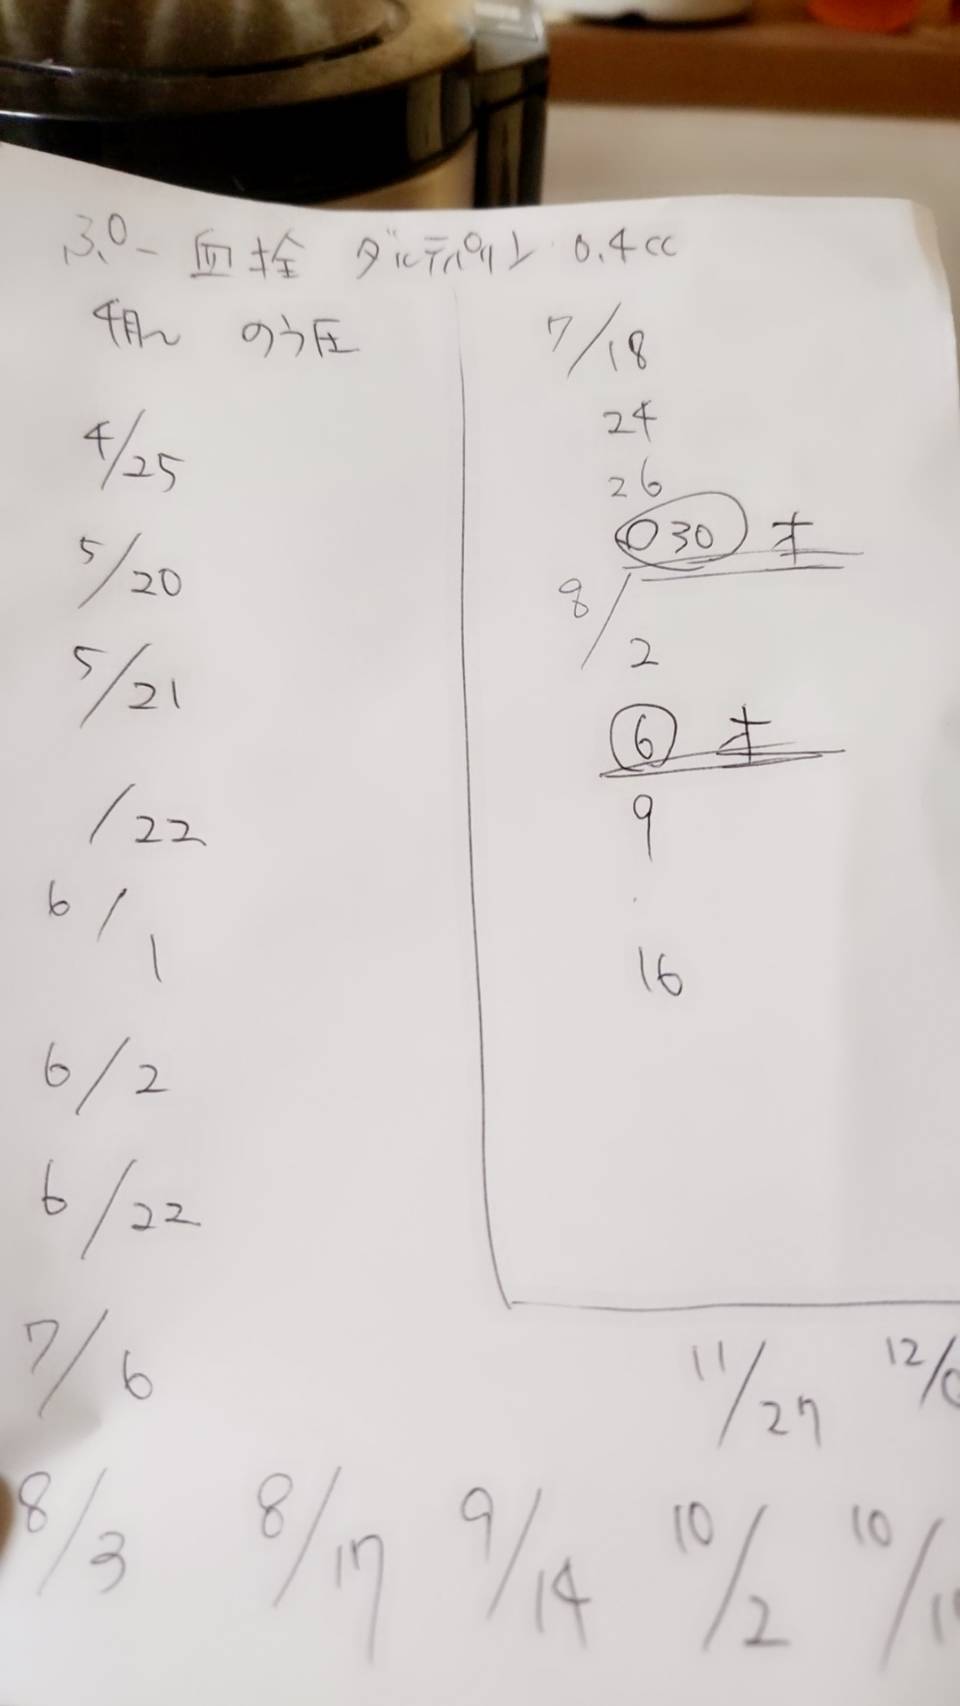 血栓 ダルテパリン 0.4cc
のう圧
4/25
5/20
5/21
/22
6/1
6/2
6/22
7/6
7/18
24
26
030 オ
8/2
6 オ
9
16
11/27 12/
8/3 8/17 9/14 10/2 10/1